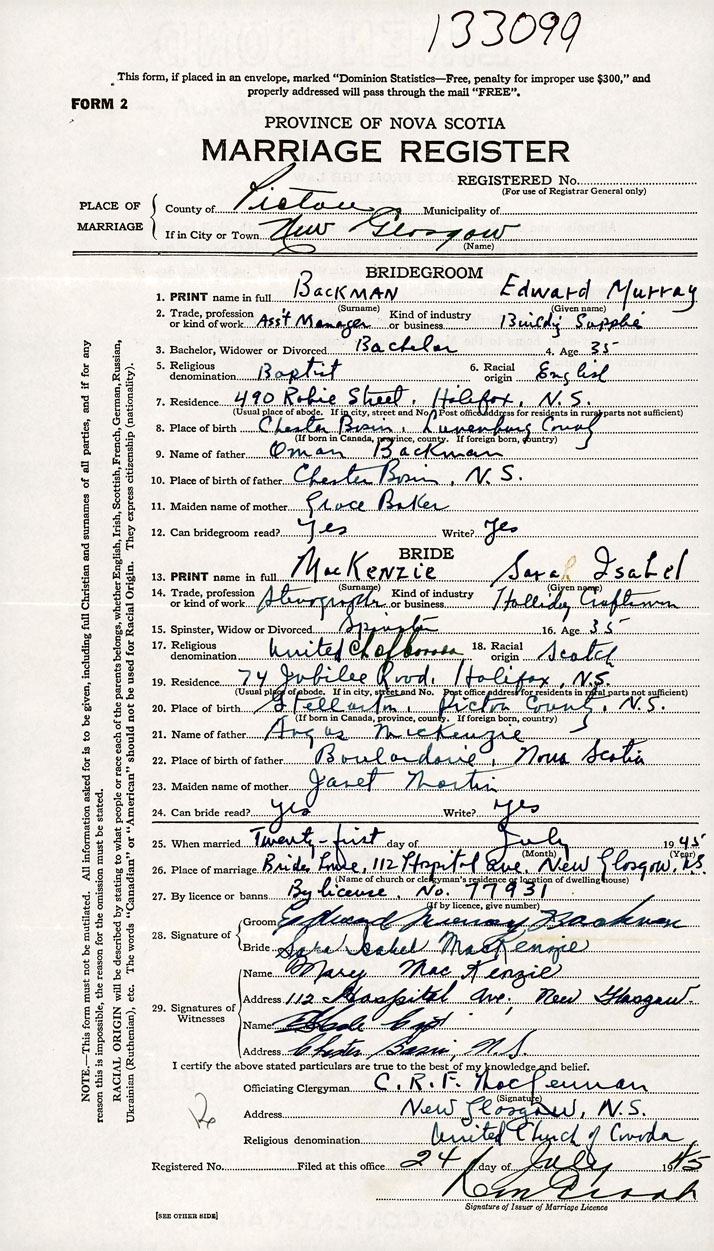 133099
This form, if placed in an envelope, marked "Dominion Statistics—Free, penalty for improper use $300," and
properly addressed will pass through the mail "FREE".
FORM 2
PROVINCE OF NOVA SCOTIA
MARRIAGE REGISTER
REGISTERED No.
(For use of Registrar General only)
PLACE OF MARRIAGE
County of Pictou Municipality of
If in City or Town New Glasgow
(Name)
BRIDEGROOM
1. PRINT name in full BACKMAN Edward Murray
(Surname) (Given name)
2. Trade, profession or kind of work Ass't Manager Kind of industry or business Buildg Supplie
3. Bachelor, Widower or Divorced Bachelor 4. Age 35
5. Religious denomination Baptist 6. Racial origin English
7. Residence 490 Robie Street, Halifax, N.S.
(Usual place of abode. If in city, street and No. Post office address for residents in rural parts not sufficient)
8. Place of birth Chester Basin, Lunenburg County
(If born in Canada, province, county. If foreign born, country)
9. Name of father Oman Backman
10. Place of birth of father Chester Basin, N.S.
11. Maiden name of mother Grace Baker
12. Can bridegroom read? Yes Write? Yes
BRIDE
13. PRINT name in full MacKenzie Sarah Isabel
(Surname) (Given name)
14. Trade, profession or kind of work Stenographer Kind of industry or business Holliday Craftsmen
15. Spinster, Widow or Divorced Spinster 16. Age 35
17. Religious denomination United Ch of Canada 18. Racial origin Scotch
19. Residence 74 Jubilee Road, Halifax, N.S.
(Usual place of abode. If in city, street and No. Post office address for residents in rural parts not sufficient)
20. Place of birth Stellarton, Pictou County, N.S.
(If born in Canada, province, county. If foreign born, country)
21. Name of father Angus McKenzie
22. Place of birth of father Boulardarie, Nova Scotia
23. Maiden name of mother Janet Martin
24. Can bride read? Yes Write? Yes
25. When married Twenty-first day of July 1945
(Month) (Year)
26. Place of marriage Brides home, 112 Hospital Ave. New Glasgow, N.S.
(Name of church or clergyman's residence or location of dwelling house)
27. By licence or banns By license, No. 77931
(If by licence, give number)
28. Signature of
Groom Edward Murray Backman
Bride Sara Isabel MacKenzie
29. Signatures of Witnesses
Name Mary MacKenzie
Address 112 Hospital Ave, New Glasgow.
Name
Address Chester Basin, N.S.
I certify the above stated particulars are true to the best of my knowledge and belief.
Officiating Clergyman C. R. F. MacLennan
(Signature)
Address New Glasgow, N.S.
Religious denomination United Church of Canada
Registered No. Filed at this office 24 day of July 1945
Signature of Issuer of Marriage Licence
[SEE OTHER SIDE]
NOTE.—This form must not be mutilated. All information asked for is to be given, including full Christian and surnames of all parties, and if for any
reason this is impossible, the reason for the omission must be stated.
RACIAL ORIGIN will be described by stating to what people or race each of the parents belongs, whether English, Irish, Scottish, French, German, Russian,
Ukrainian (Ruthenian), etc. The words "Canadian" or "American" should not be used for Racial Origin. They express citizenship (nationality).